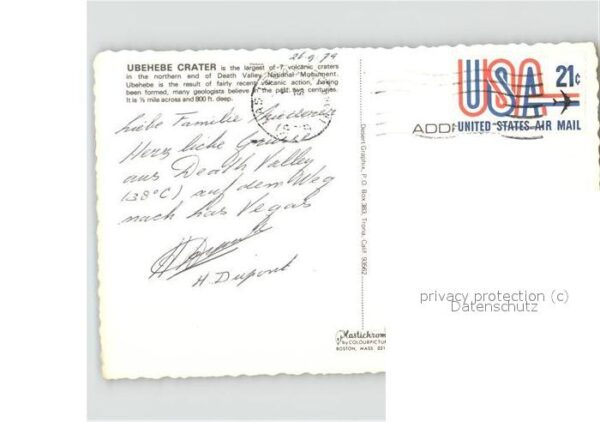 26.9.79
UBEHEBE CRATER is the largest of 7 volcanic craters
in the northern end of Death Valley National Monument.
Ubehebe is the result of fairly recent volcanic action, having
been formed, many geologists believe in the past two centuries.
It is ½ mile across and 800 ft. deep.
Liebe Familie
Herzliche Grüsse
aus Death Valley
(38°C), auf dem Weg
nach Las Vegas
H. Dupont
Desert Graphix, P. O. Box 383, Trona, Calif. 93562
Plastichrome
by COLOURPICTUR
BOSTON, MASS. 021
USA 21c
ADD
UNITED STATES AIR MAIL
privacy protection (c)
Datenschutz